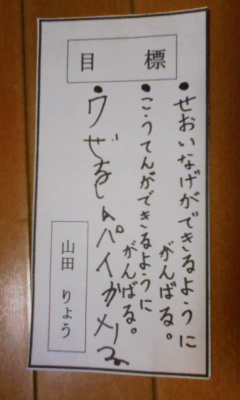 目標
・せおいなげができるように
がんばる。
・こうてんができるように
がんばる。
・ワぜをしんパイかりる
山田 りょう